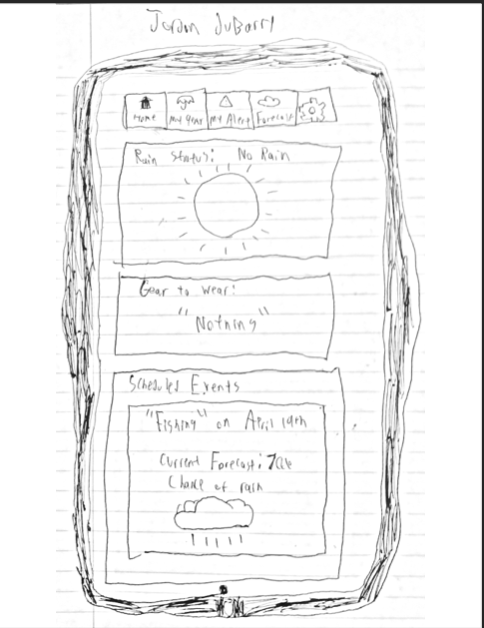 Jordan DuBarry
Home My Gear My Alert Forecast
Rain Status: No Rain
Gear to wear:
"Nothing"
Scheduled Events
"Fishing" on April 19th
Current Forecast:
Chance of rain